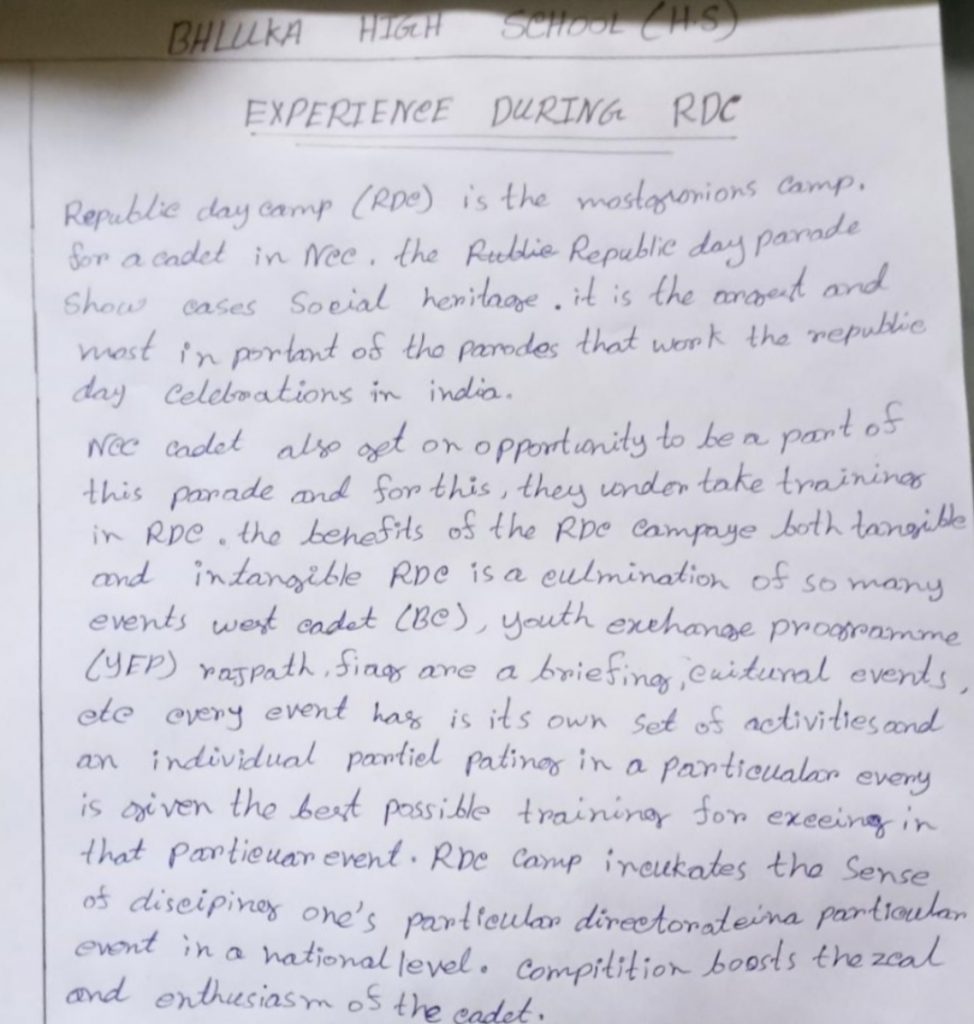 BHLUKA HIGH SCHOOL (H.S)
EXPERIENCE DURING RDC
Republic day camp (RDC) is the mostgronions camp.
for a cadet in Ncc. the Rubblie Republic day parade
Show cases Social heritage. it is the argest and
most in portant of the parades that work the republic
day celebrations in india.
NCC cadet also get on opportunity to be a part of
this parade and for this, they under take training
in RDC. the benefits of the RDC campaye both tangible
and intangible RDC is a culmination of so many
events west cadet (BC), youth exchange programme
(YEP) rajpath, fiag are a briefing, cuitural events,
etc every event has is its own set of activities and
an individual partiel pating in a particualar every
is given the best possible training for exeeing in
that particuar event. RDC camp incukates the Sense
of discipineg one's particular directorateina particular
event in a national level. compitition boosts the zeal
and enthusiasm of the cadet.